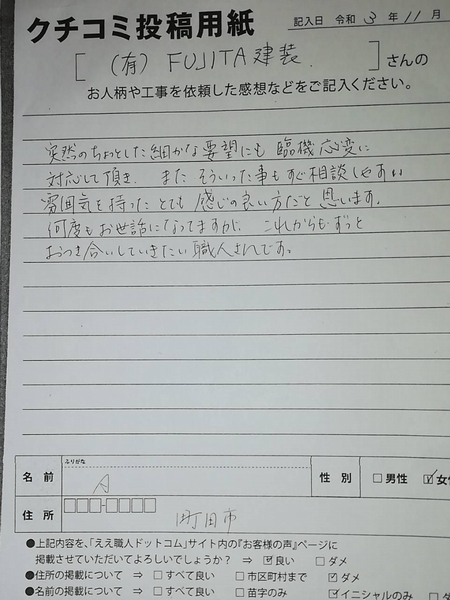 クチコミ投稿用紙
記入日 令和 3 年 11 月
[ (有) FUJITA建装. ] さんの
お人柄や工事を依頼した感想などをご記入ください。
突然のちょっとした細かな要望にも 臨機応変に
対応して頂き、また そういった事もすぐ相談しやすい
雰囲気を持った とても 感じの良い方だと 思います。
何度もお世話になってますが、これからも ずっと
おつき合いしていきたい 職人さんです。
ふりがな
名前 A 性別 □男性 ☑女
住所 □□□-□□□□ 町田市
●上記内容を、「ええ職人ドットコム」サイト内の『お客様の声』ページに
掲載させていただいてよろしいでしょうか? ⇒ ☑良い □ダメ
●住所の掲載について ⇒ □すべて良い □市区町村まで ☑ダメ
●名前の掲載について ⇒ □すべて良い □苗字のみ ☑イニシャルのみ □ダ